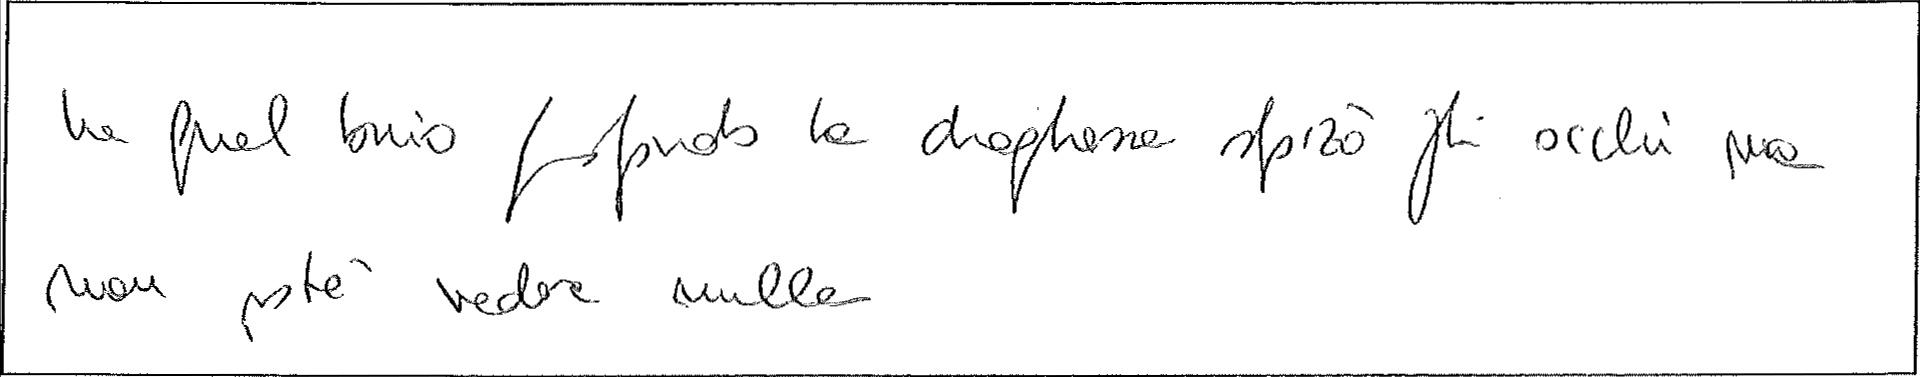 In quel buio profondo la draghessa spizò gli occhi ma
non poté vedere nulla